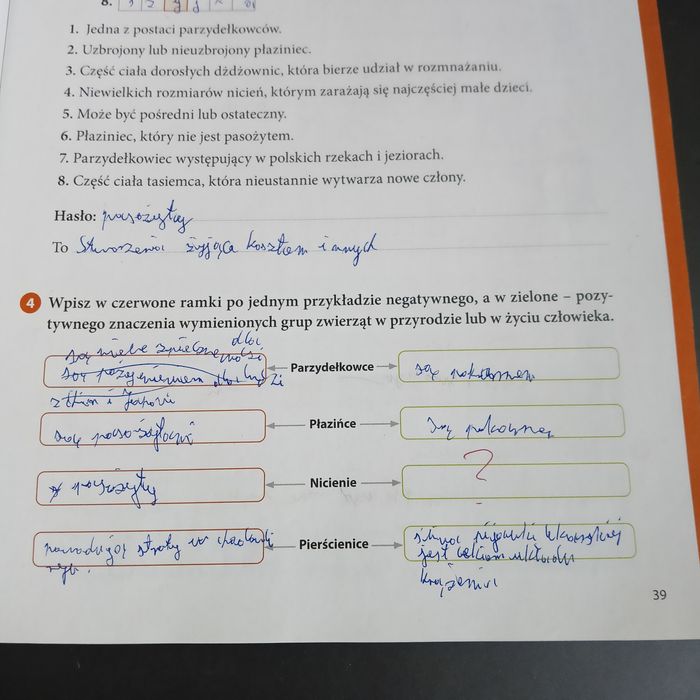 8.
1. Jedna z postaci parzydełkowców.
2. Uzbrojony lub nieuzbrojony płaziniec.
3. Część ciała dorosłych dżdżownic, która bierze udział w rozmnażaniu.
4. Niewielkich rozmiarów nicień, którym zarażają się najczęściej małe dzieci.
5. Może być pośredni lub ostateczny.
6. Płaziniec, który nie jest pasożytem.
7. Parzydełkowiec występujący w polskich rzekach i jeziorach.
8. Część ciała tasiemca, która nieustannie wytwarza nowe człony.
Hasło: pasożyty
To Stworzenia żyjąca kosztem innych
4 Wpisz w czerwone ramki po jednym przykładzie negatywnego, a w zielone – pozy-
tywnego znaczenia wymienionych grup zwierząt w przyrodzie lub w życiu człowieka.
dla
są
ludzi
Parzydełkowce
są pokarmem
z Chin i Japonii
są
Płazińce
są
?
pasożyty
Nicienie
powodują straty w
ryb.
Pierścienice
pijawki lekarskiej
jest
krążenia
39